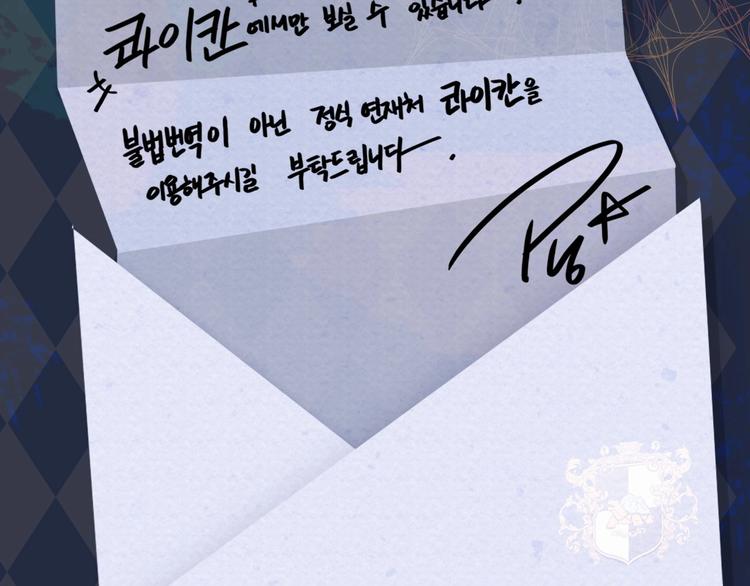 콰이칸에서만 보실 수 있습니다.
불법번역이 아닌 정식 연재처 콰이칸을
이용해주시길 부탁드립니다.